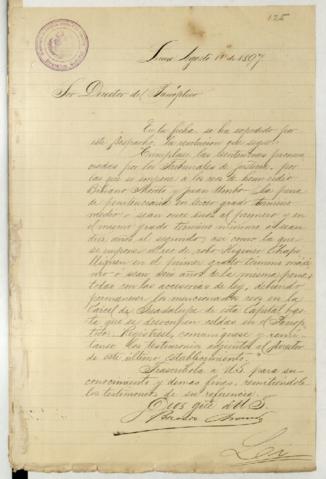 125
Lima, Agosto 1º de 1897
Sor Director del Panóptico
En la fecha se ha expedido por
este Despacho la resolucion que sigue:
"Cúmplase las sentencias pronun
ciadas por los Tribunales de justicia, por
las que se impone a los reos de homicidio
y Juan la pena
de penitenciaria en tercer grado término
medio o sean once años al primero y en
el mismo grado término mínimo o sean
diez años al segundo; asi como la que
se impone al reo de robo
en el primer grado término máxi
mo o sean seis años de la misma pena,
todas con las accesorias de ley, debiendo
permanecer los mencionados reos en la
Carcel de Guadalupe de esta Capital has
ta que se desocupen celdas en el Panóp
tico. Regístrese, comuníquese y remí
tanse los testimonios adjuntos al Director
de este último establecimiento."
Trascríbola a US. para su
conocimiento y demas fines, remitiéndole
los testimonios de su referencia.
Dios gue. a US.